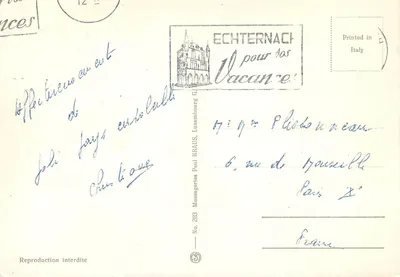 12
nces
ECHTERNACH
pour vos
Vacances
Printed in
Italy
Affectueusement
de
joli pays
Christiane
No. 263 Messageries Paul KRAUS, Luxembourg
M. Mme
6, rue de Marseille
Paris X
France
Reproduction interdite